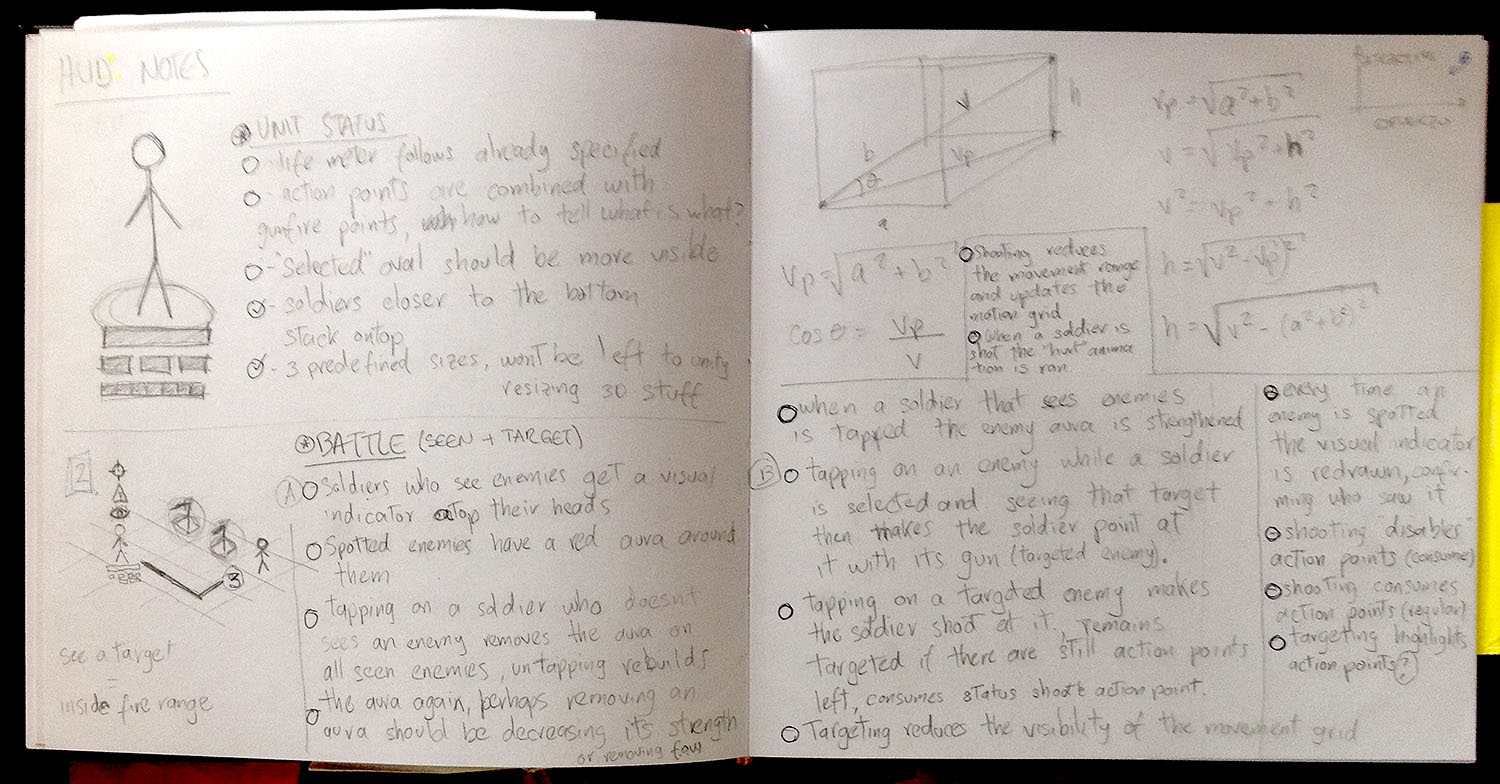 HUD NOTES
UNIT STATUS
- life meter follows already specified
- action points are combined with
gunfire points, how to tell what is what?
- "Selected" oval should be more visible
- soldiers closer to the bottom
stack ontop
- 3 predefined sizes, wont be left to unity
resizing 3D stuff
BATTLE (SEEN + TARGET)
A Soldiers who see enemies get a visual
indicator atop their heads
Spotted enemies have a red aura around
them
tapping on a soldier who doesn't
sees an enemy removes the aura on
all seen enemies, untapping rebuilds
the aura again, perhaps removing an
aura should be decreasing it's strength
or removing
2
3
see a target
=
inside fire range
b
V
h
Vp
θ
a
Vp = √a² + b²
V = √Vp² + h²
V² = Vp² + h²
h = √V² - Vp)²
h = √V² - (a² + b²)²
Vp = √a² + b²
cos θ = Vp
V
Shooting reduces
the movement range
and updates the
motion grid
When a soldier is
shot the "hurt" anima
tion is ran
when a soldier that sees enemies
is tapped the enemy aura is strengthened
B tapping on an enemy while a soldier
is selected and seeing that target
then makes the soldier point at
it with its gun (targeted enemy).
tapping on a targeted enemy makes
the soldier shoot at it, remains
targeted if there are still action points
left, consumes status shoot action point.
Targeting reduces the visibility of the movement grid
every time an
enemy is spotted
the visual indicator
is redrawn, confir-
ming who saw it
shooting "disables"
action points (consume)
shooting consumes
action points (regular)
targeting highlights
action points?